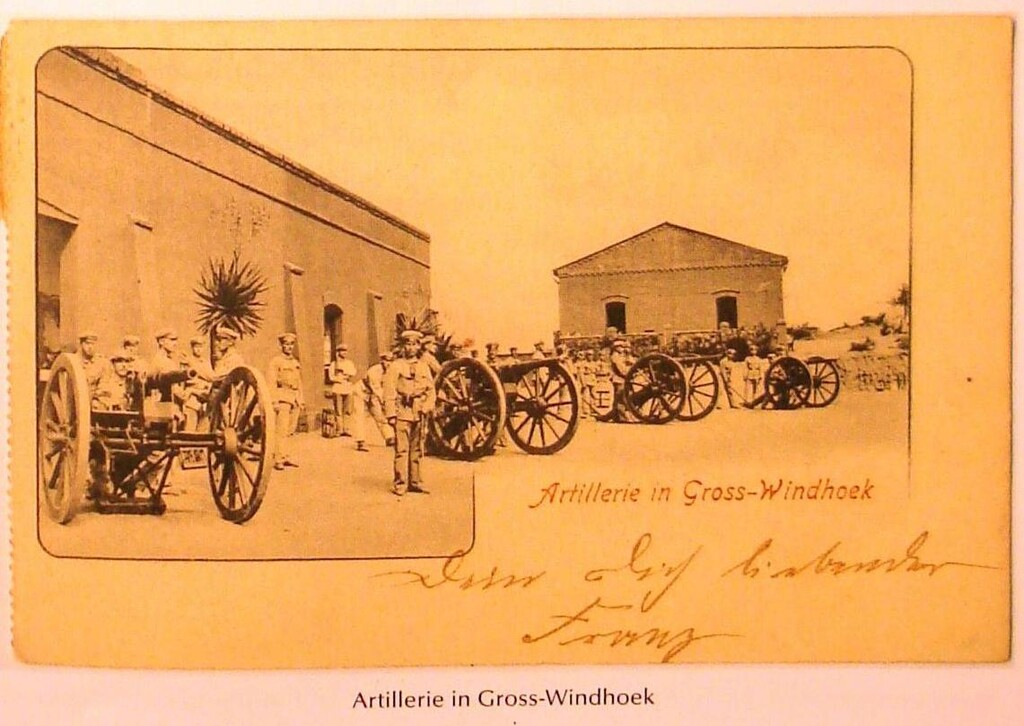 Artillerie in Gross-Windhoek
Dein Dich liebender
Franz
Artillerie in Gross-Windhoek